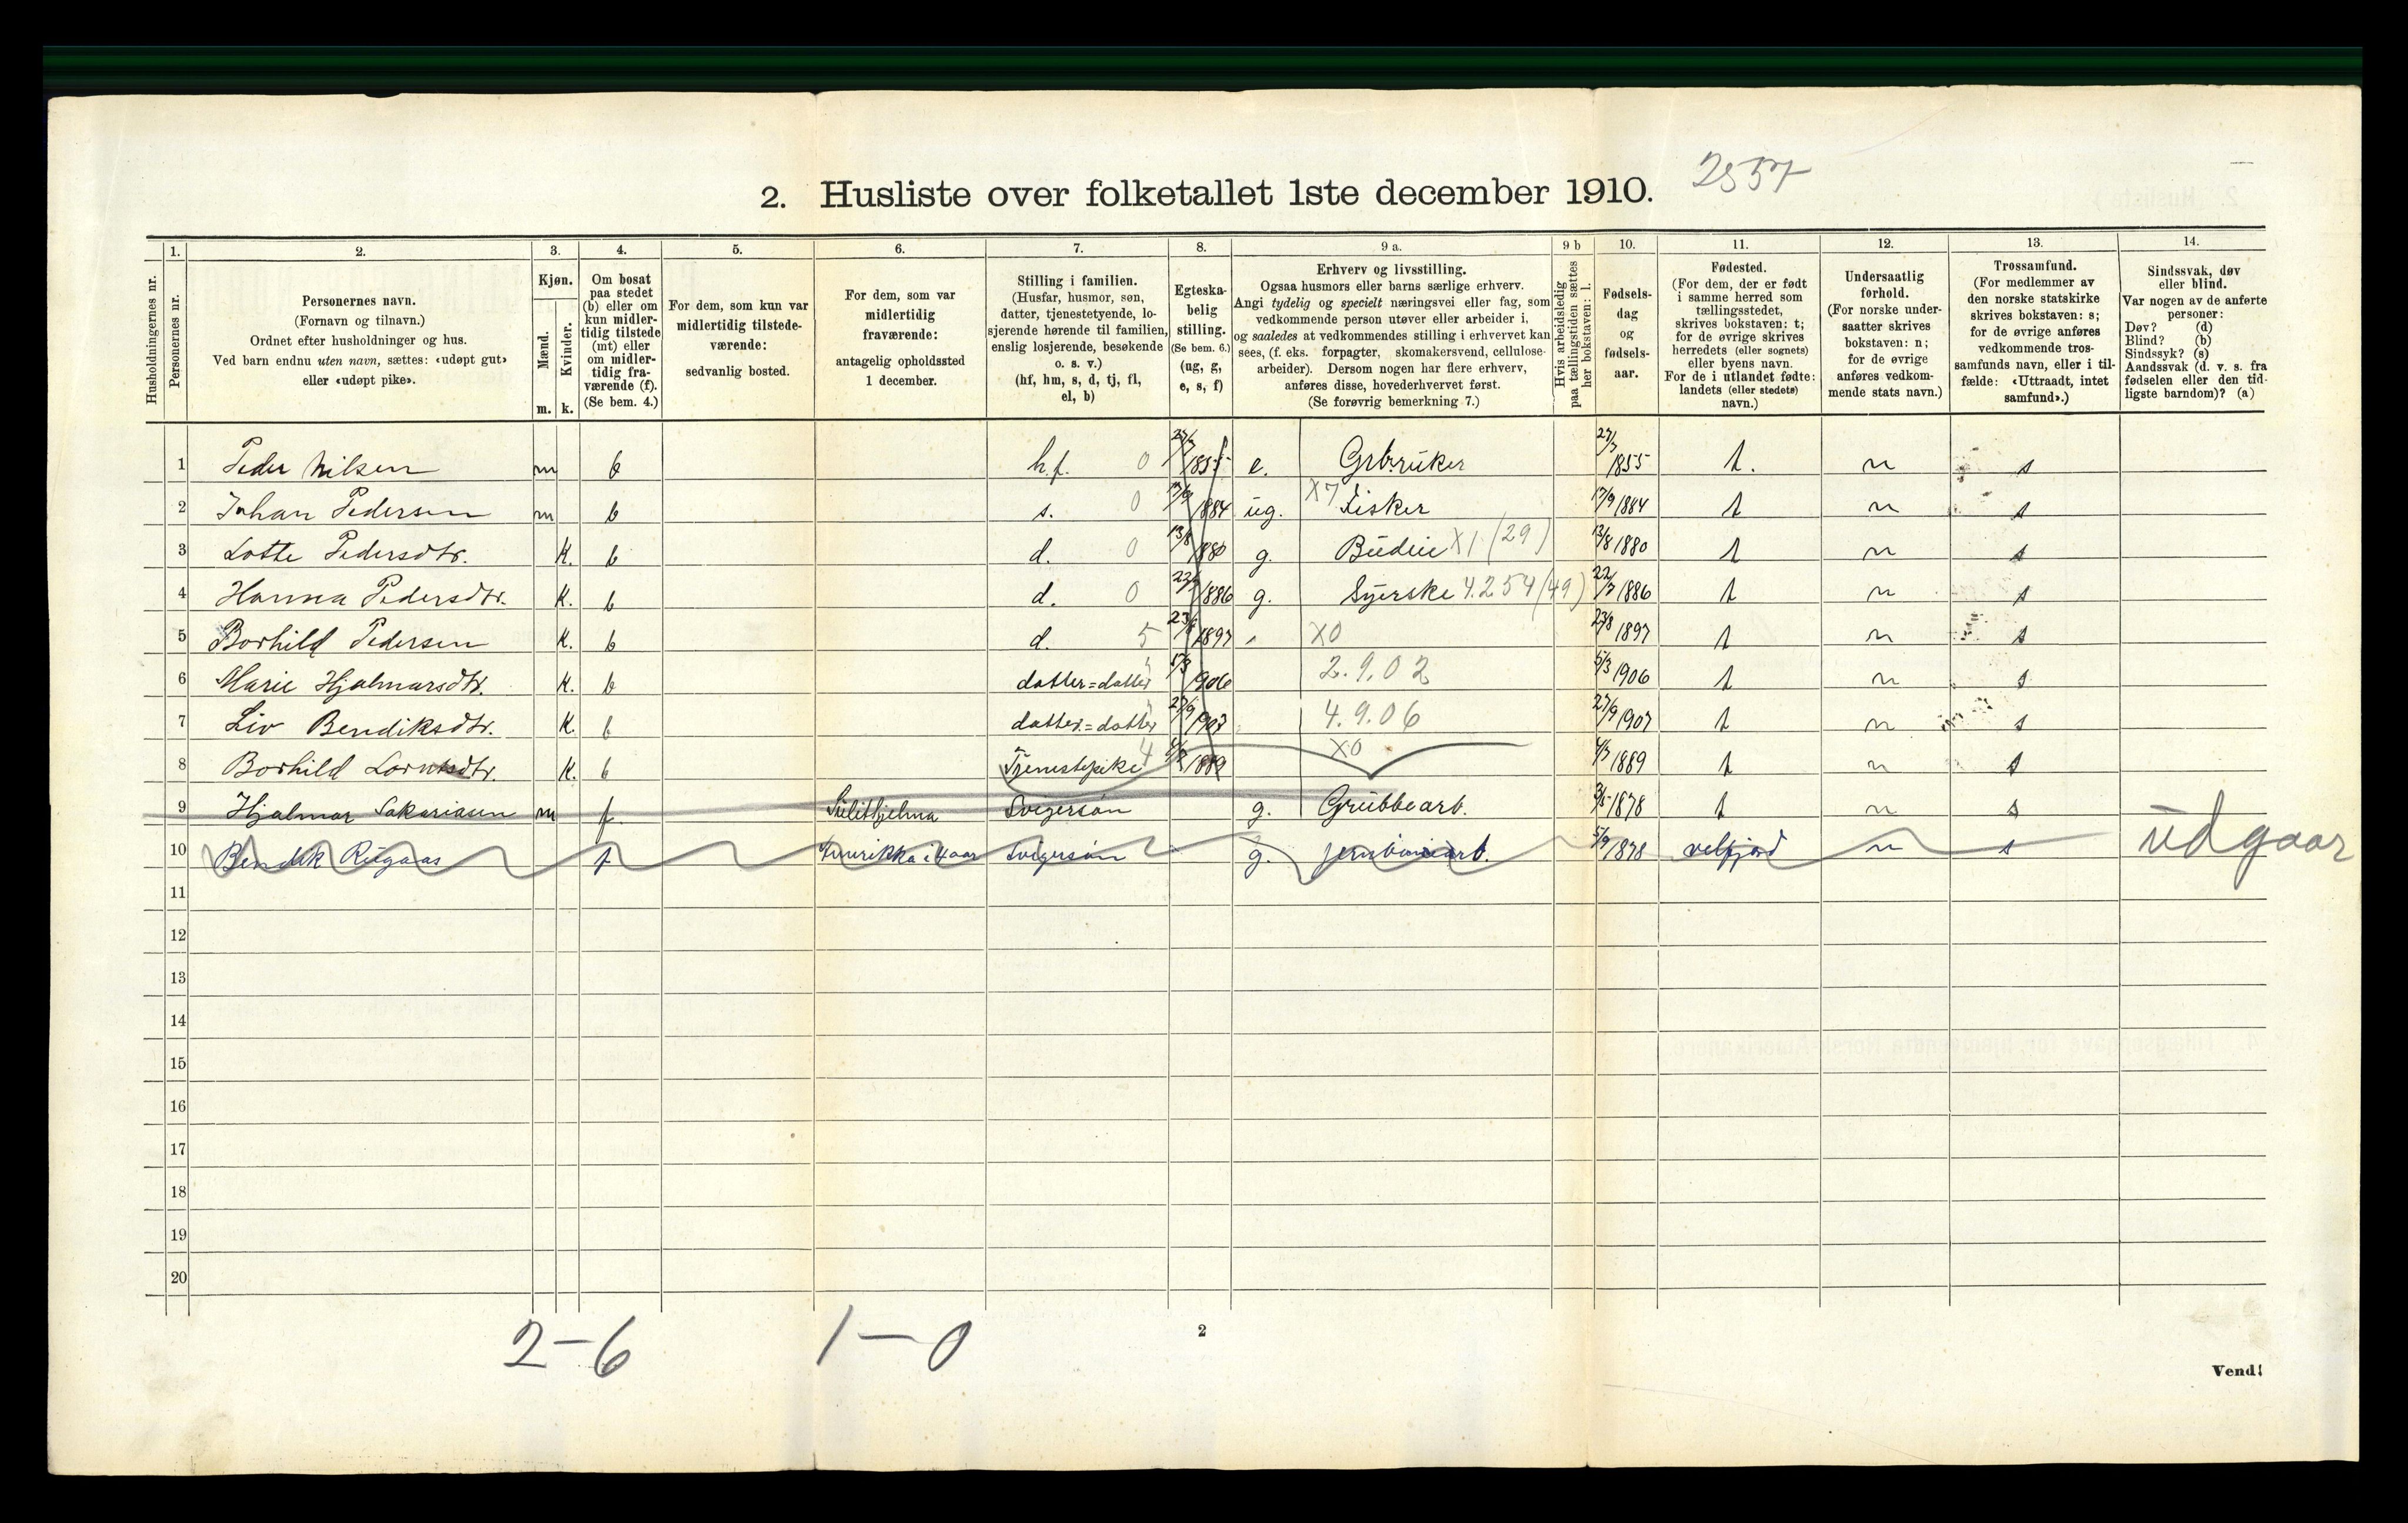 2. Husliste over folketallet 1ste december 1910. 2557
Husholdningernes nr.
1.
Personernes nr.
2.
Personernes navn.
(Fornavn og tilnavn.)
Ordnet efter husholdninger og hus.
Ved barn endnu uten navn, sættes: «udøpt gut»
eller «udøpt pike».
3.
Kjøn.
Mænd.
Kvinder.
m. k.
4.
Om bosat
paa stedet
(b) eller om
kun midler-
tidig tilstede
(mt) eller
om midler-
tidig fra-
værende (f).
(Se bem. 4.)
5.
For dem, som kun var
midlertidig tilstede-
værende:
sedvanlig bosted.
6.
For dem, som var
midlertidig
fraværende:
antagelig opholdssted
1 december.
7.
Stilling i familien.
(Husfar, husmor, søn,
datter, tjenestetyende, lo-
sjerende hørende til familien,
enslig losjerende, besøkende
o. s. v.)
(hf, hm, s, d, tj, fl,
el, b)
8.
Egteska-
belig
stilling.
(Se bem. 6.)
(ug, g,
e, s, f)
9 a.
Erhverv og livsstilling.
Ogsaa husmors eller barns særlige erhverv.
Angi tydelig og specielt næringsvei eller fag, som
vedkommende person utøver eller arbeider i,
og saaledes at vedkommendes stilling i erhvervet kan
sees, (f. eks. forpagter, skomakersvend, cellulose-
arbeider). Dersom nogen har flere erhverv,
anføres disse, hovederhvervet først.
(Se forøvrig bemerkning 7.)
9 b
Hvis arbeidsledig
paa tællingstiden sættes
her bokstaven: l.
10.
Fødsels-
dag
og
fødsels-
aar.
11.
Fødested.
(For dem, der er født
i samme herred som
tællingsstedet,
skrives bokstaven: t;
for de øvrige skrives
herredets (eller sognets)
eller byens navn.
For de i utlandet fødte:
landets (eller stedets)
navn.)
12.
Undersaatlig
forhold.
(For norske under-
saatter skrives
bokstaven: n;
for de øvrige
anføres vedkom-
mende stats navn.)
13.
Trossamfund.
(For medlemmer av
den norske statskirke
skrives bokstaven: s;
for de øvrige anføres
vedkommende tros-
samfunds navn, eller i til-
fælde: «Uttraadt, intet
samfund».)
14.
Sindssvak, døv
eller blind.
Var nogen av de anførte
personer:
Døv? (d)
Blind? (b)
Sindssyk? (s)
Aandssvak (d. v. s. fra
fødselen eller den tid-
ligste barndom)? (a)
1 Peder Nilsen m b h.f. 0 27/3 1855 e. Grbrüker 27/3 1855 t. n s
2 Johan Pedersen m b s. 0 17/9 1884 üg. X7 Fisker 17/9 1884 t n s
3 Lotte Pedersdtr. K. b d. 0 13/8 1880 g. Büdeie X1 (29) 13/8 1880 t n s
4 Hanna Pedersdtr. K. b d. 0 22/7 1886 g. Syerske 4.254 (49) 22/7 1886 t n s
5 Borhild Pedersen K. b d. 5 23/8 1897 X0 23/8 1897 t n s
6 Marie Hjalmarsdtr. K. b datter=datter 5/3 1906 2.9.02 5/3 1906 t n s
7 Liv Bendiksdtr. K. b datter=datter 27/9 1907 4.9.06 27/9 1907 t n s
8 Borhild K. b Tjenestepike 4 1889 X0 4/3 1889 t n s
9 Hjalmar Sakariasen m f. Sülitjelma Svigersøn g. Grübbearb. 1878 t s
10 Bendik Rügaas f Amerikka i 4 aar Svigersøn g. 5/9 1878 velfjord n s üdgaar
11
12
13
14
15
16
17
18
19
20
2-6 1-0
2
Vend!